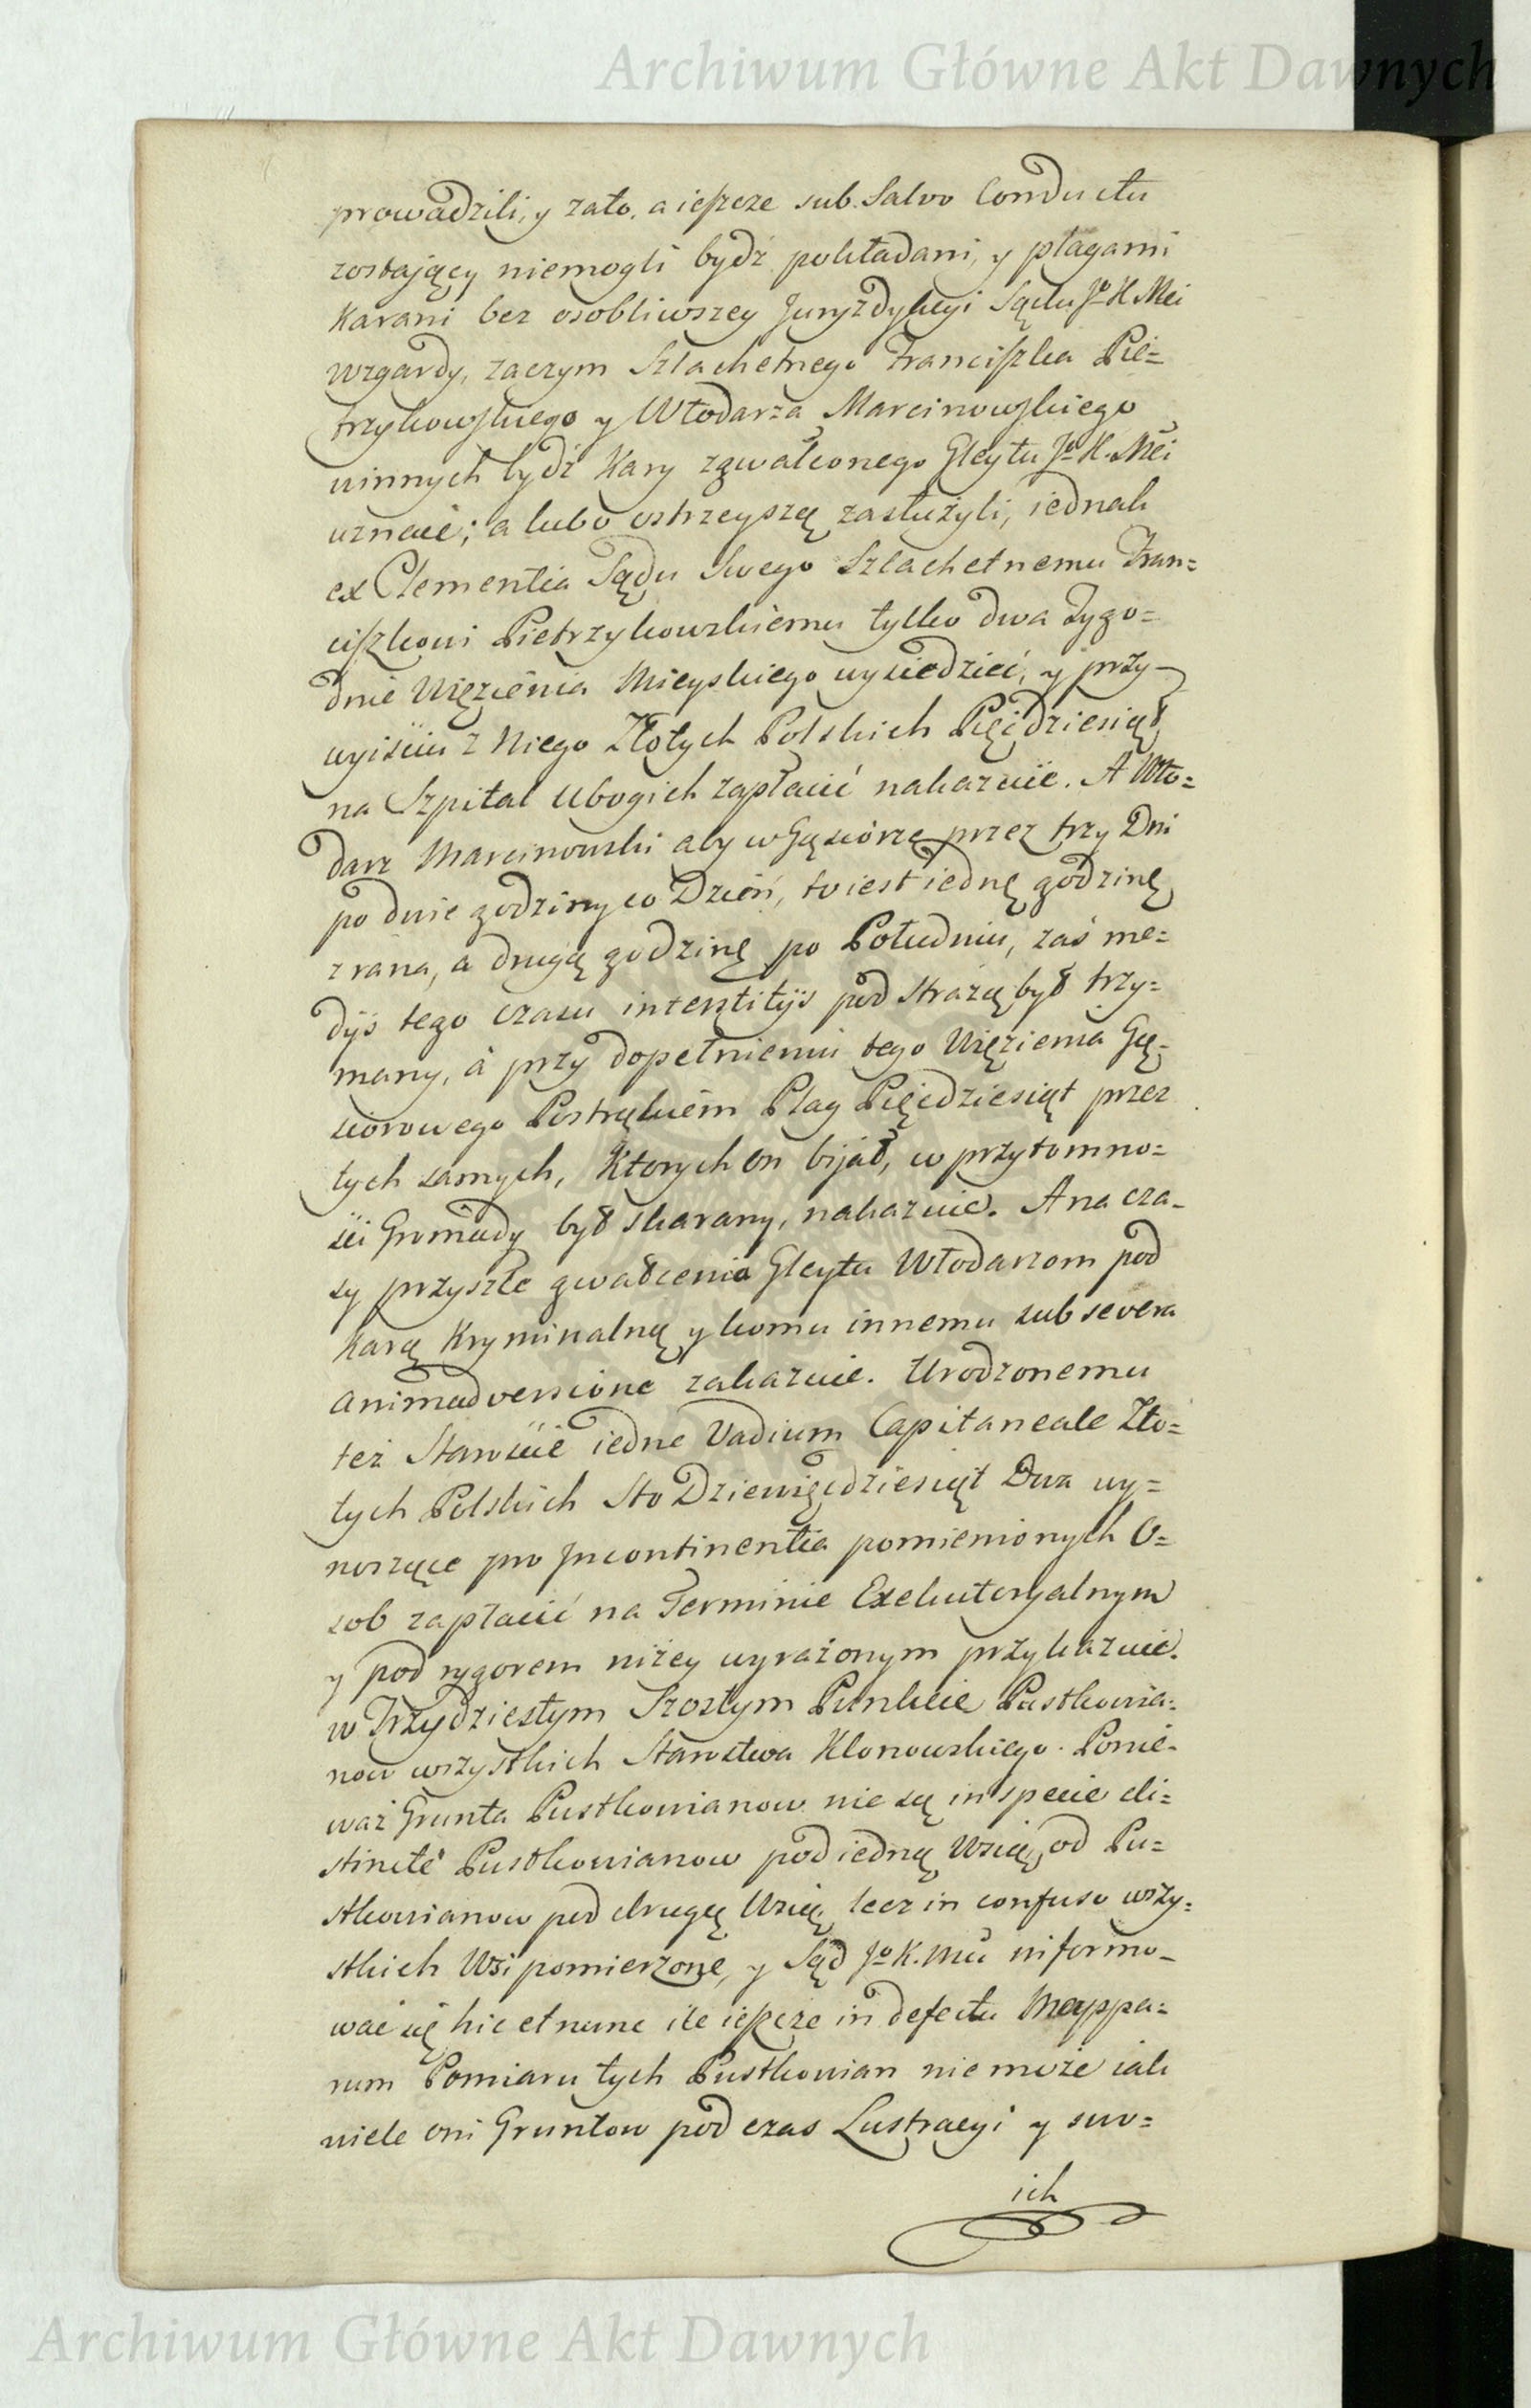 Archiwum Główne Akt Dawnych
prowadzili, y zato, a ieszcze sub Salvo Conductu
zostaiący niemogli bydź pokładani, y plagami
Karani bez osobliwszey Juryzdykcyi Sądu Jo K Mci
wzgardy, zaczym Szlachetnego Franciszka Pie=
trzykowskiego y Włodarza Marcinowskiego
winnych bydź Kary zgwałconego Gleytu Jo K. Mci
uznaie; a lubo ostrzeyszą zasłużyli, iednak
ex Clementia Sądu Swego Szlachetnemu Fran=
ciszkowi Pietrzykowskiemu tylko dwa Tygo=
dnie Więzienia Mieyskiego wysiedzieć, y przy
wyisciu z Niego Złotych Polskich Pięćdziesiąt
na Szpital Ubogich zapłacić nakazuie. A Wło=
darz Marcinowski aby w Gąsiorze przez trzy Dni
po dwie godziny co Dzień, to iest iednę godzinę
z rana, a drugą godzinę po Południu, zaś me=
dÿs tego czasu interstitÿs pod strażą był trzy=
many, a przy dopełnieniu tego Więzienia Gą=
siorowego Postrąkiem Plag Pięćdziesiąt przez
tych samych, Ktorych On bijał, w przytomno=
ści Gromady był skarany, nakazuie. A na cza=
sy przyszłe gwałcenia Gleytu Włodarzom pod
Karą Kryminalną y komu innemu sub severa
animadversione zakazuie. Urodzonemu
też Staroście iedne Vadium Capitaneale Zło=
tych Polskich Sto Dziewięćdziesiąt Dwa wy=
noszące pro Incontinentia pomienionych O=
sob zapłacić na Terminie Exekutoryalnym
y pod rygorem niżey wyrażonym przykazuie.
w Trzydziestym Szostym Punkcie Pustkowia=
now wszystkich Starostwa Klonowskiego. Ponie=
waż Grunta Pustkowianow nie są in specie di=
stincte Pustkowianow pod iedną Wsią, od Pu=
stkowianow pod drugą Wsią, lecz in confuso wszy=
stkich Wsi pomierzone, y Sąd Jo K. Mci informo=
wać się hic et nunc ile ieszcze in defectu Mappa=
rum Pomiaru tych Pustkowian nie może iak
wiele oni Gruntow pod czas Lustracyi y swo=
ich
Archiwum Główne Akt Dawnych